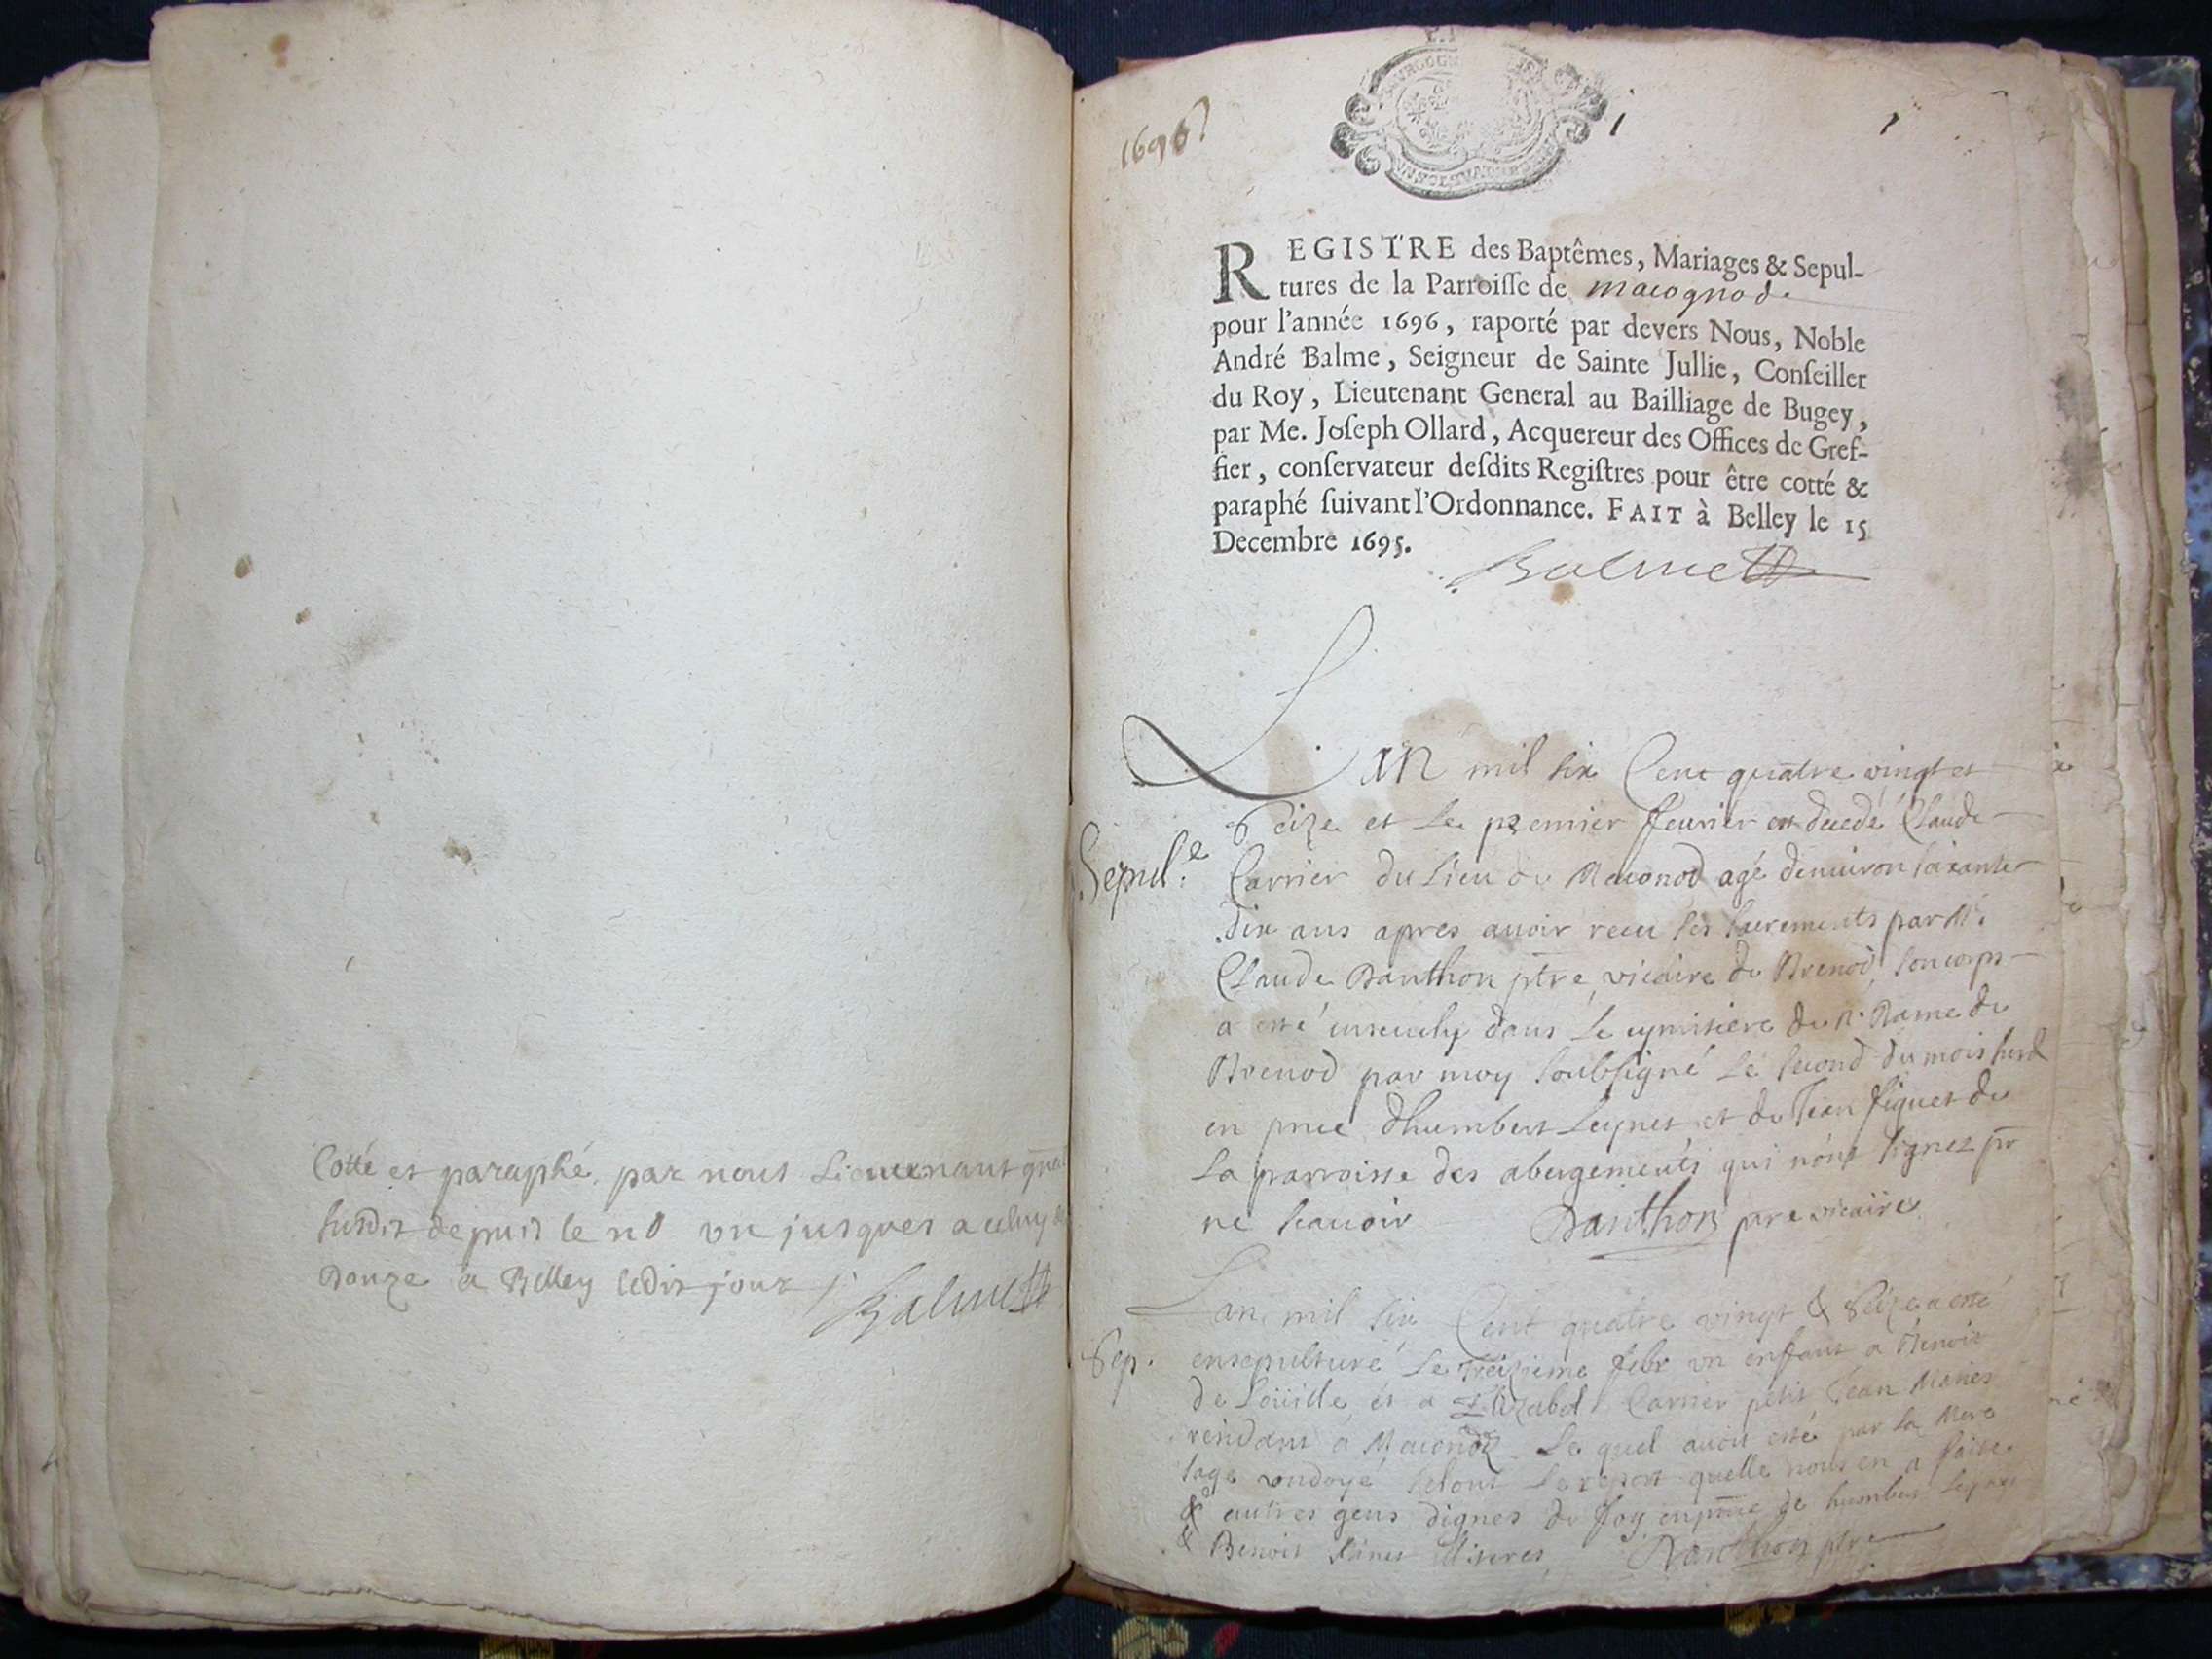 Cotté et paraphé par nous Lieutenant gnal
susdit depuis le n° un jusques a celuy de
Douze a Belley ledit jour
Balme
1696
1
REGISTRE des Baptêmes, Mariages & Sepul-
tures de la Parroisse de macognod
pour l'année 1696, raporté par devers Nous, Noble
André Balme, Seigneur de Sainte Jullie, Conseiller
du Roy, Lieutenant General au Bailliage de Bugey,
par Me. Joseph Ollard, Acquereur des Offices de Gref-
fier, conservateur desdits Registres pour être cotté &
paraphé suivant l'Ordonnance. FAIT à Belley le 15
Decembre 1695.
Balme
Lan mil six Cent quatre vingt et
Seize et le premier feurier est decedé Claude
Sepul.e
Carrier du lieu de Maconod agé denuiron soixante
dix ans apres auoir receu ses sacrements par Mr
Claude Danthon ptre vicaire de Brenod son corps
a esté enseuely dans le cymitiere de N. Dame de
Brenod par moy soubsigné le second du mois susd
en pnce dhumbert Leynet et de Jean figuet de
la parroisse des abergements qui nont signez pr
ne scauoir Danthon ptre vicaire
Lan mil six Cent quatre vingt & Seize a esté
Sep.
ensepulturé le treizieme febr un enfant a Benoit
de Loüille et a Elizabet Carrier petit Jean
residant a Maconod le quel auoit esté par la Mere
sage ondoyé selont le report quelle nous en a faite
& autres gens dignes de foy en pnce de humbert Leynet
& Benoit Danthon ptre